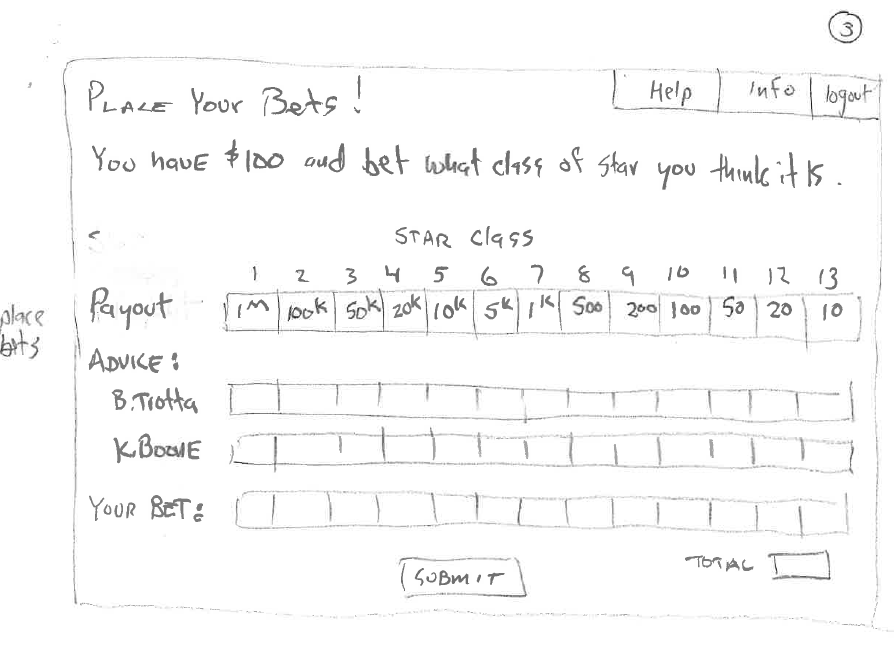 3
Help Info logout
PLACE Your Bets!
You have $100 and bet what class of star you think it is.
STAR Class
1 2 3 4 5 6 7 8 9 10 11 12 13
Payout 1M 100K 50K 20K 10K 5K 1K 500 200 100 50 20 10
place
ADVICE:
B.Trotta
K.Boone
YOUR BET:
SUBMIT TOTAL